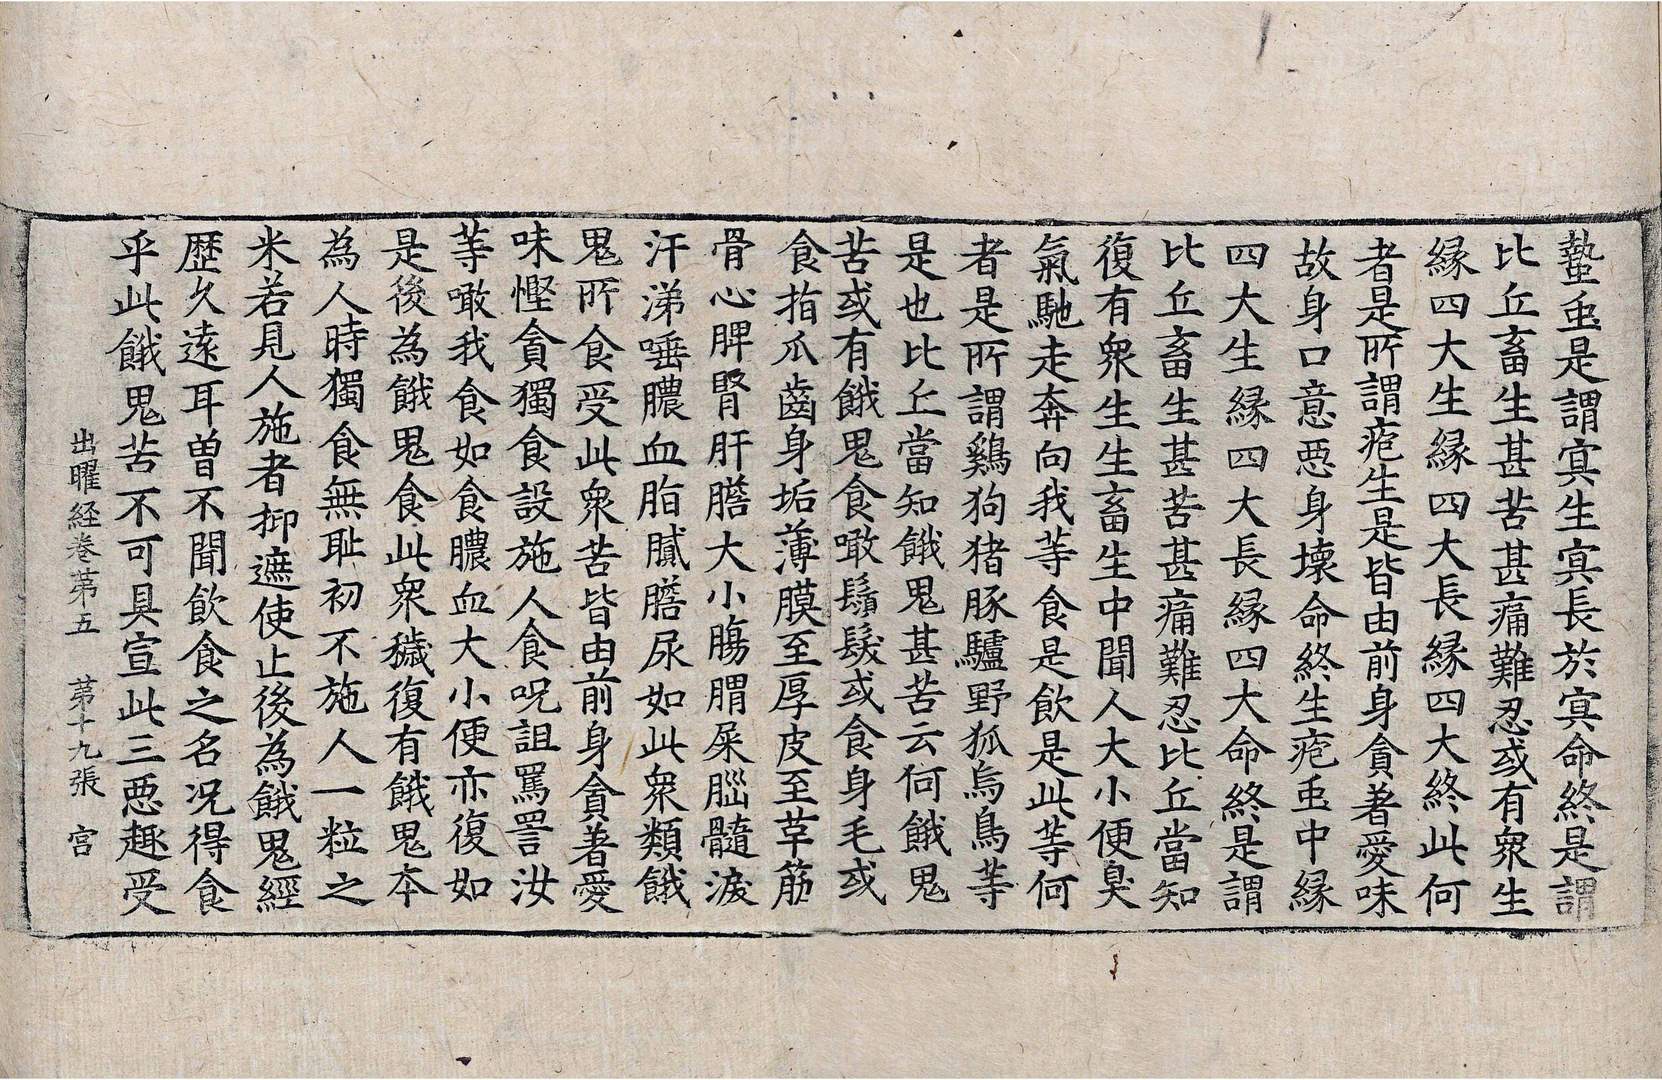 蟄虫是謂寘生寘長於寘命終是謂
比丘畜生甚苦甚痛難忍或有衆生
緣四大生緣四大長緣四大終此何
者是所謂疱生是皆由前身貪著愛味
故身口意惡身壞命終生疱虫中緣
四大生緣四大長緣四大命終是謂
比丘畜生甚苦甚痛難忍比丘當知
復有衆生生畜生中聞人大小便臭
氣馳走奔向我等食是飲是此等何
者是所謂鷄狗猪豚驢野狐烏鳥等
是也比丘當知餓鬼甚苦云何餓鬼
苦或有餓鬼食噉鬚髮或食身毛或
食指爪齒身垢薄膜至厚皮至草筋
骨心脾腎肝膽大小腸胃屎腦髓淚
汗涕唾膿血脂膩膽尿如此衆類餓
鬼所食受此衆苦皆由前身貪著愛
味慳貪獨食設施人食呪詛罵詈汝
等噉我食如食膿血大小便亦復如
是後為餓鬼食此衆穢復有餓鬼本
為人時獨食無恥初不施人一粒之
米若見人施者抑遮使止後為餓鬼經
歷久遠耳曾不聞飲食之名況得食
乎此餓鬼苦不可具宣此三惡趣受
出曜経卷苐五 苐十九張 宫